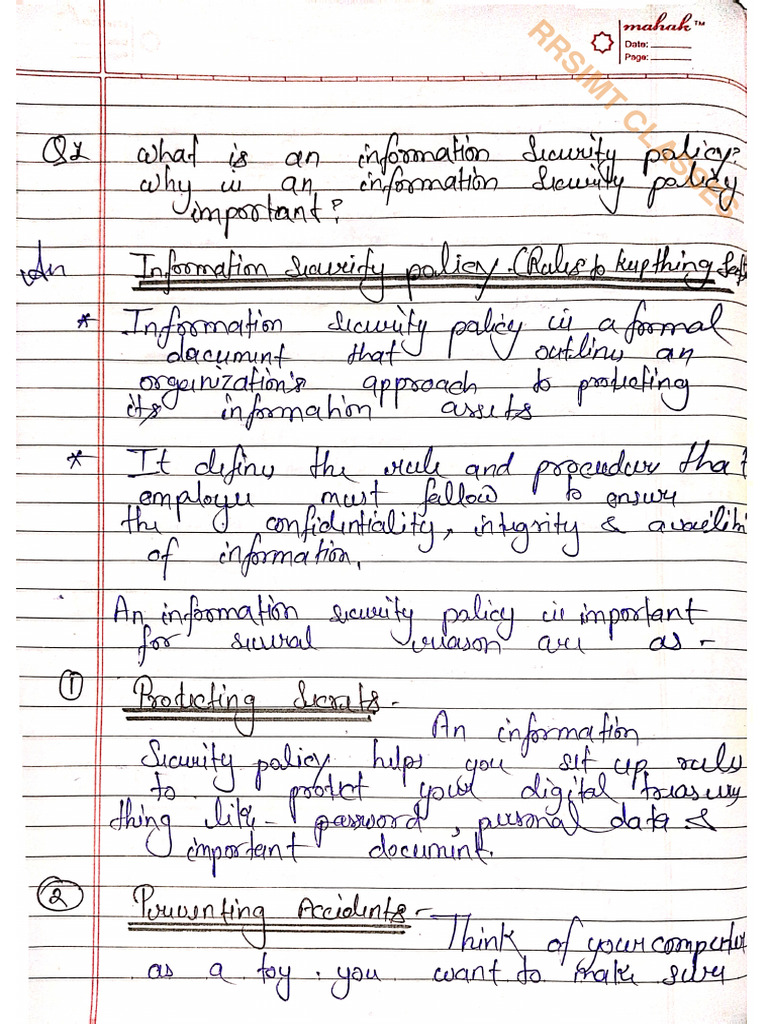 mahak™
Date:
Page:
RRSIMT CLASSES
Q1 What is an information security policy?
Why is an information security policy
important?
An Information security policy. (Rules to keep thing Safe
* Information security policy is a formal
document that outlines an
organization's approach to protecting
its information assets
* It defines the rule and procedur that
employee must follow to ensure
the confidentiality, integrity & availibi
of information.
An information security policy is important
for sevral reason are as -
① Protecting Secrats -
An information
Security policy helps you set up rules
to protect your digital treasury
thing like - password, personal data &
important document.
② Preventing Accidents -
Think of your computer
as a toy. you want to make sure